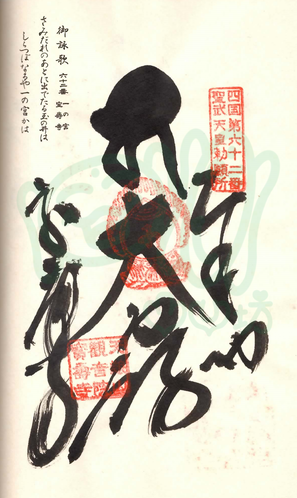 四国第六十二番
聖武天皇勅願所
奉納
大
天養山
観音院
寳壽寺
宝寿寺
御詠歌 六十二番 一の宮 宝寿寺
さみだれのあとに出でたる玉の井は
しらつぼなるや一の宮かは